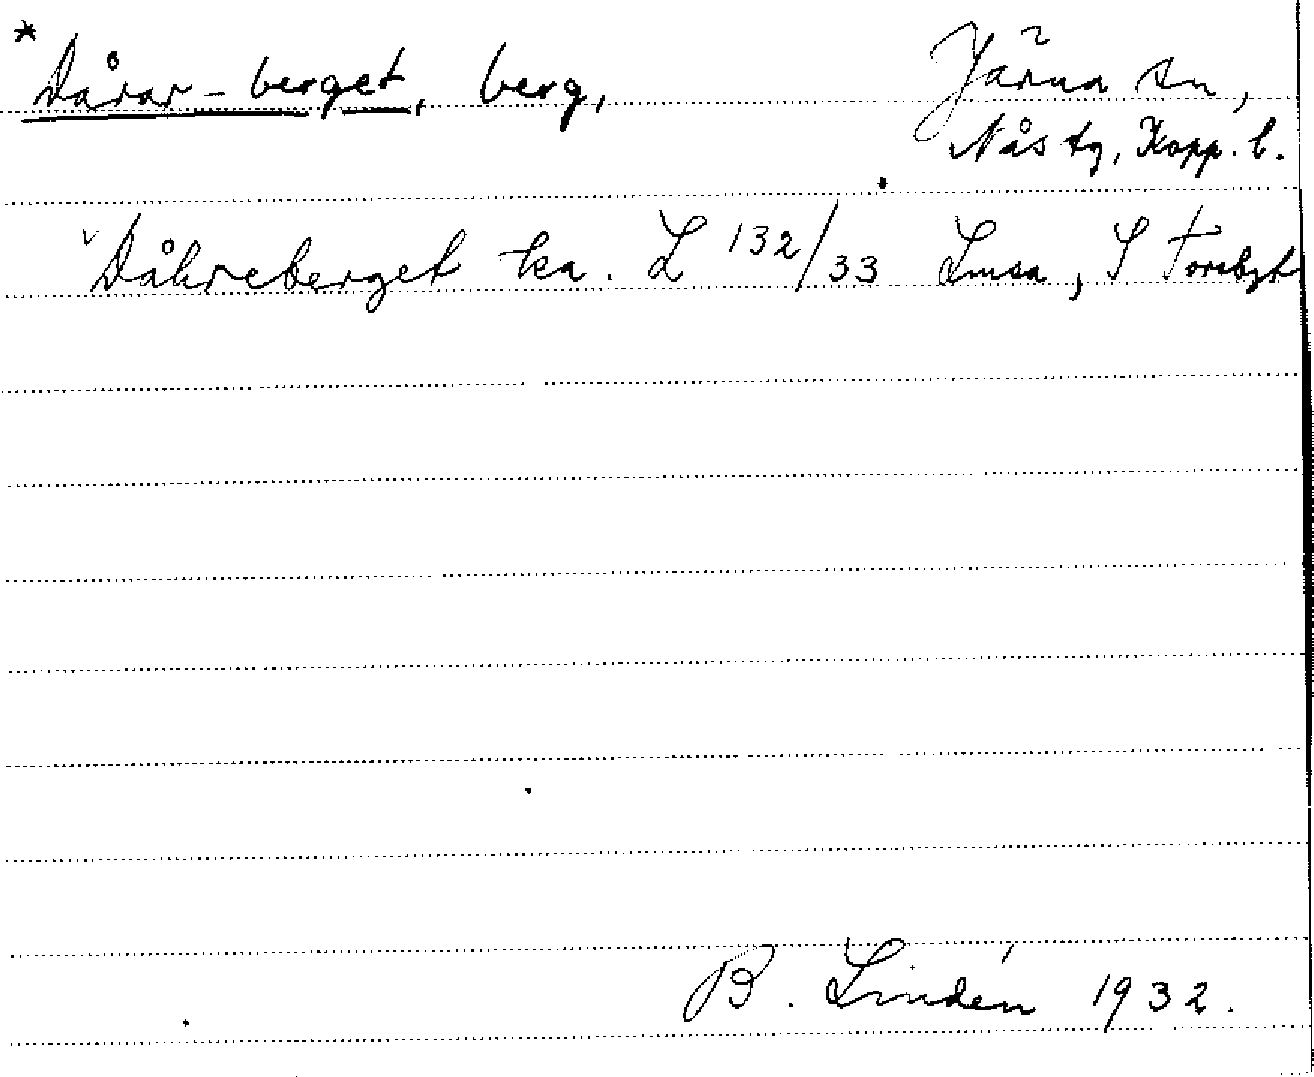 * Dårar-berget, berg, Järna sn,
Nås tg, Kopp. l.
Dåhreberget ka. L 132/33 Lmsa, S Torsbyt
B. Lindén 1932.